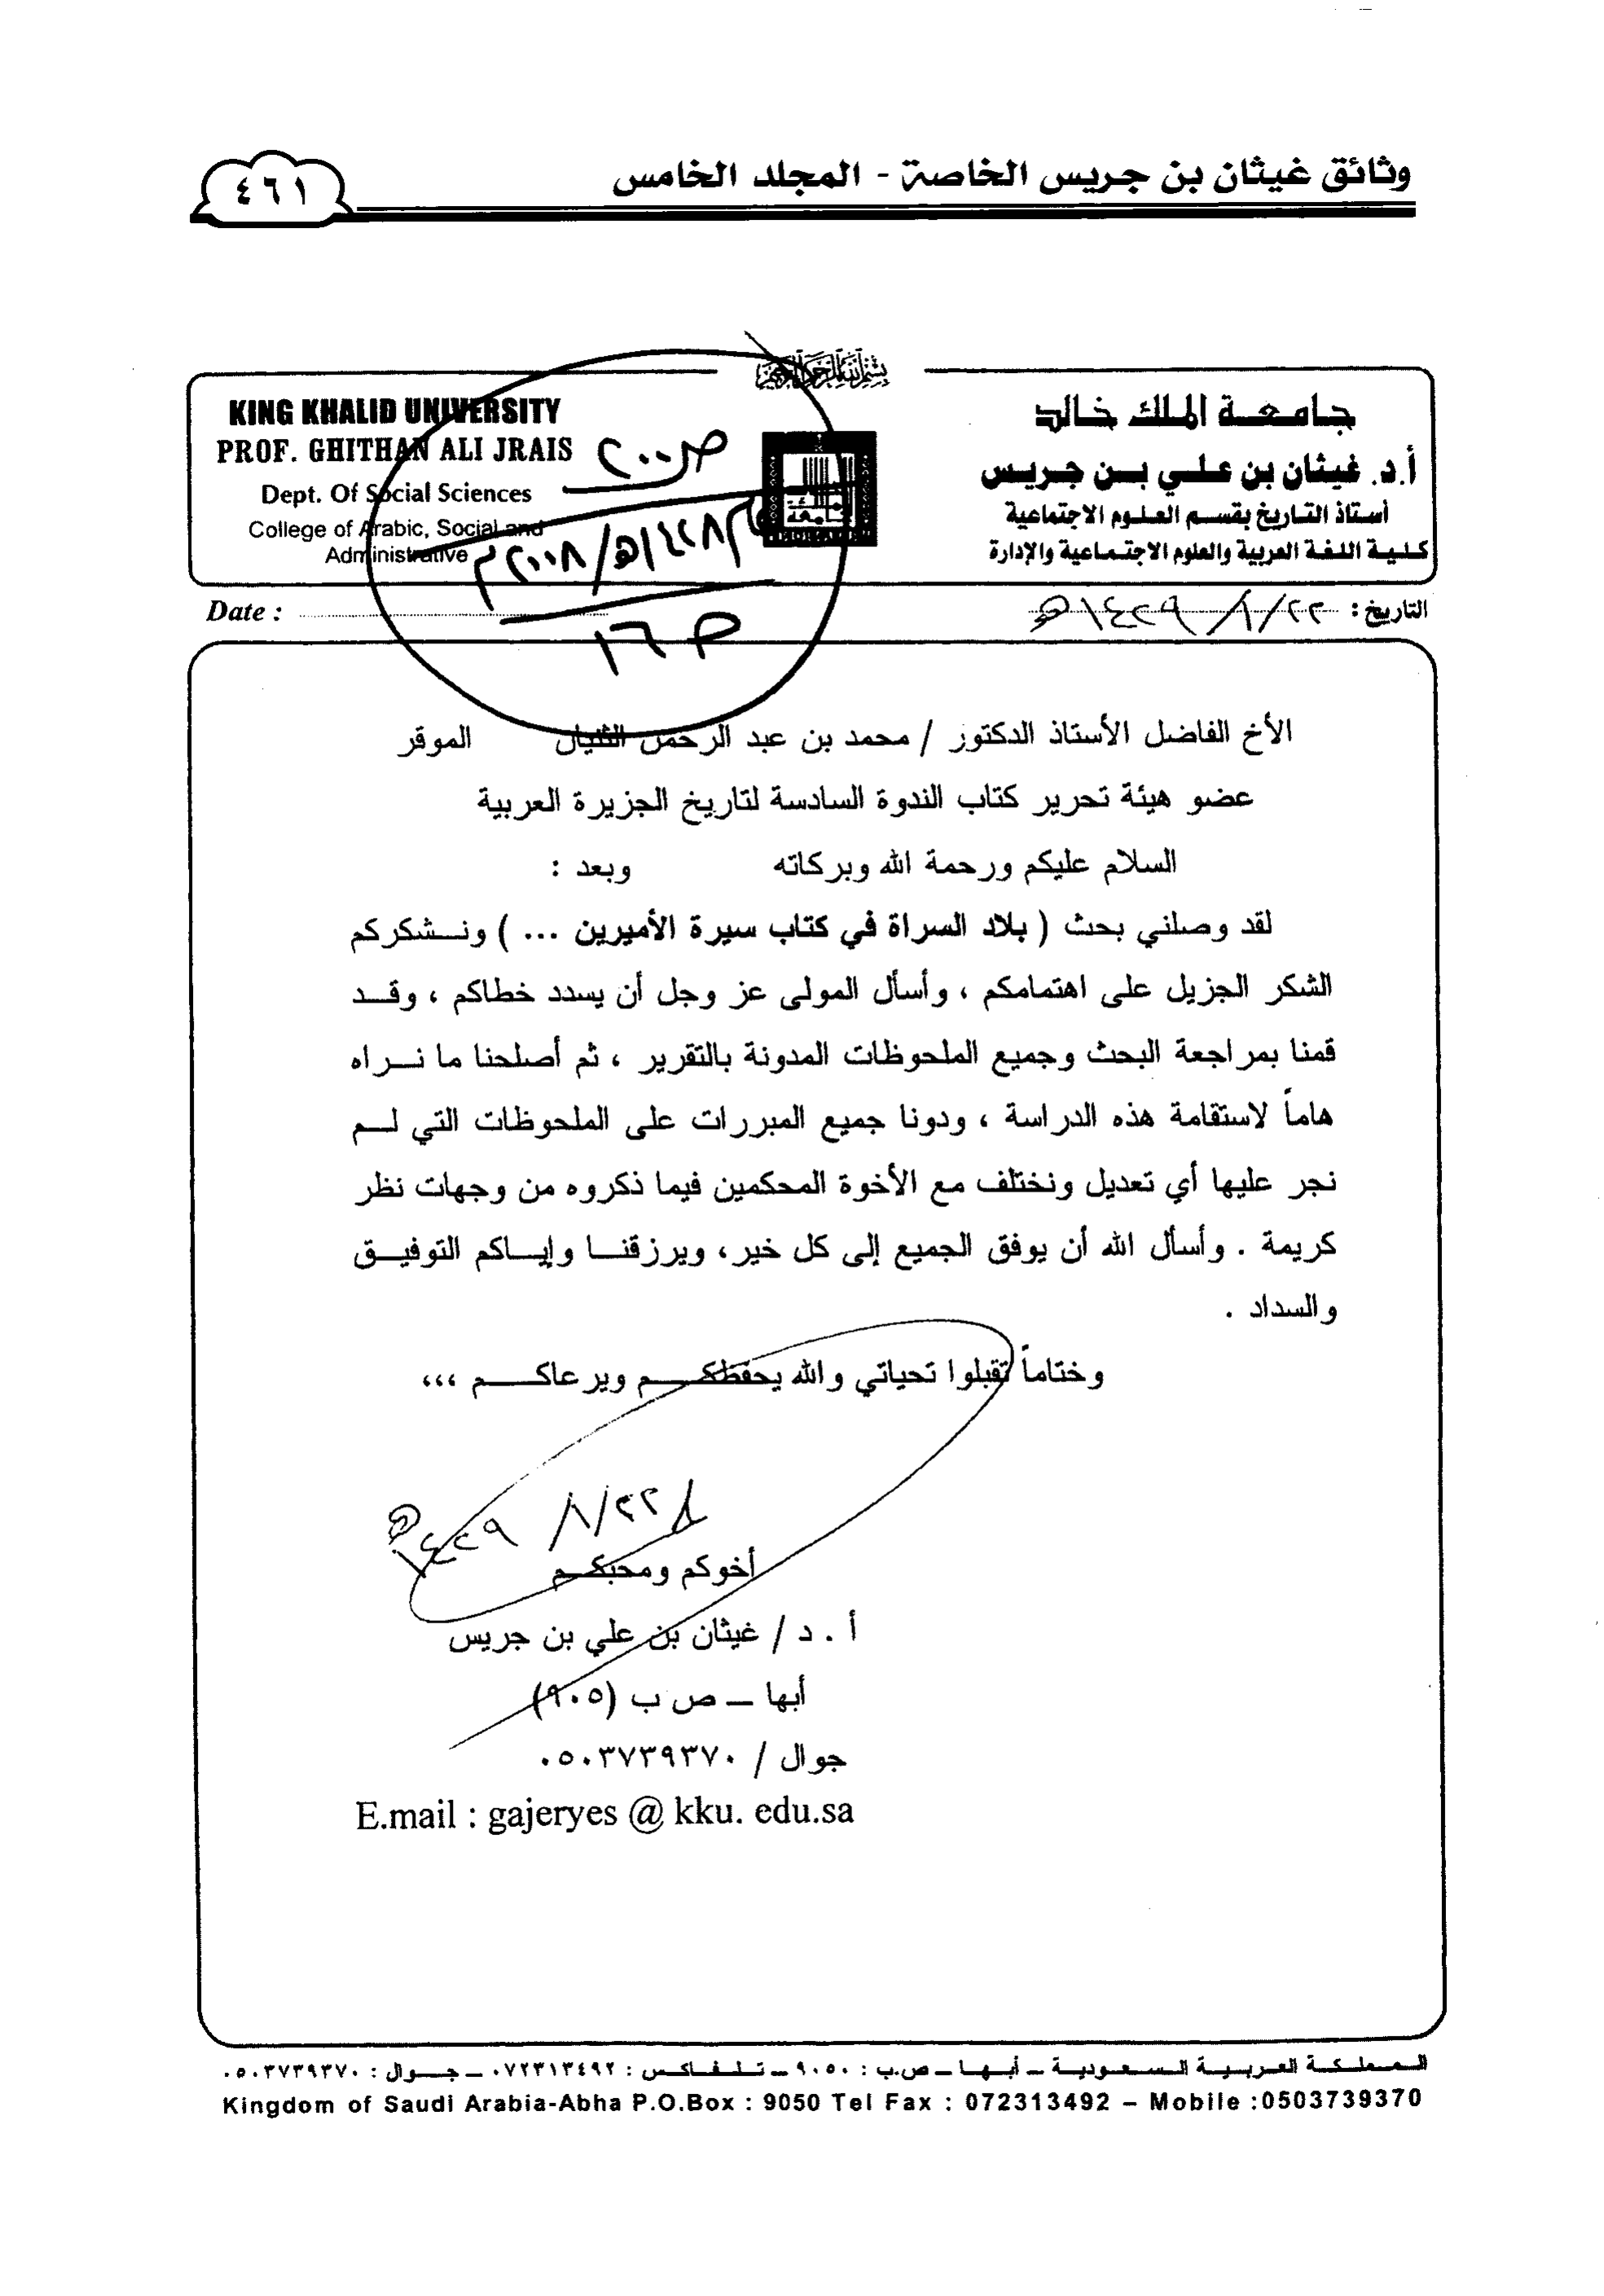 وثائق غيثان بن جريس الخاصة - المجلد الخامس
٤٦١
بسم الله الرحمن الرحيم
جامعة الملك خالد
أ.د. غيثان بن علي بن جريس
أستاذ التاريخ بقسم العلوم الاجتماعية
كلية اللغة العربية والعلوم الاجتماعية والإدارة
KING KHALID UNIVERSITY
PROF. GHITHAN ALI JRAIS
Dept. Of Social Sciences
College of Arabic, Social and
Administrative
ص٢٠٠
١٤٢٨هـ/٢٠٠٨م
ص١٦
التاريخ : ٢٢/٨/١٤٢٩هـ
Date :
الأخ الفاضل الأستاذ الدكتور / محمد بن عبد الرحمن الثنيان الموقر
عضو هيئة تحرير كتاب الندوة السادسة لتاريخ الجزيرة العربية
السلام عليكم ورحمة الله وبركاته وبعد :
لقد وصلني بحث ( بلاد السراة في كتاب سيرة الأميرين ... ) ونشكركم
الشكر الجزيل على اهتمامكم ، وأسأل المولى عز وجل أن يسدد خطاكم ، وقد
قمنا بمراجعة البحث وجميع الملحوظات المدونة بالتقرير ، ثم أصلحنا ما نراه
هاماً لاستقامة هذه الدراسة ، ودونا جميع المبررات على الملحوظات التي لم
نجر عليها أي تعديل ونختلف مع الأخوة المحكمين فيما ذكروه من وجهات نظر
كريمة . وأسأل الله أن يوفق الجميع إلى كل خير، ويرزقنا وإياكم التوفيق
والسداد .
وختاماً تقبلوا تحياتي والله يحفظكم ويرعاكم ،،،
٢٢/٨/١٤٢٩هـ
أخوكم ومحبكم
أ . د / غيثان بن علي بن جريس
أبها – ص ب (٩٠٥)
جوال / ٠٥٠٣٧٣٩٣٧٠
E.mail : gajeryes @ kku. edu.sa
المملكة العربية السعودية – أبها – ص.ب : ٩٠٥٠ – تلفاكس : ٠٧٢٣١٣٤٩٢ – جوال : ٠٥٠٣٧٣٩٣٧٠
Kingdom of Saudi Arabia-Abha P.O.Box : 9050 Tel Fax : 072313492 – Mobile :0503739370